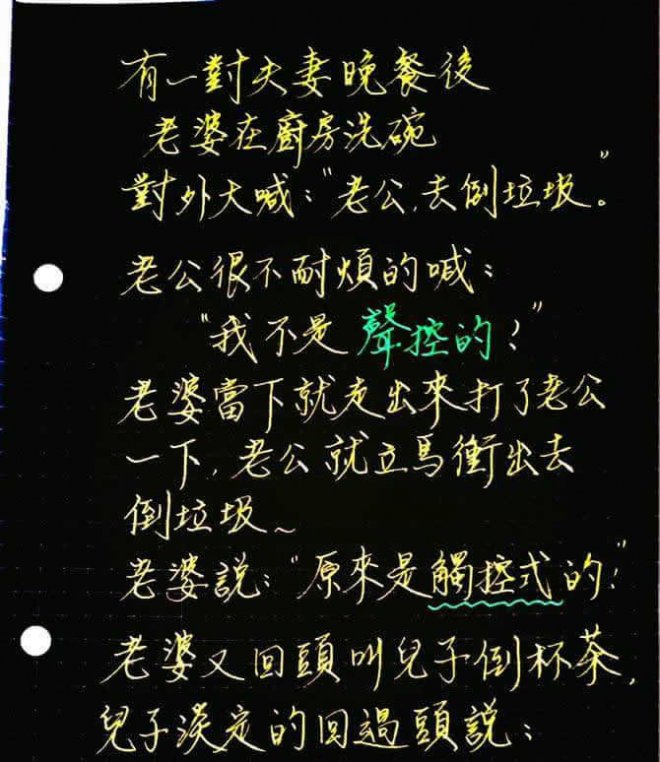 有一對夫妻晚餐後
老婆在廚房洗碗
對外大喊："老公,去倒垃圾。"
老公很不耐煩的喊：
"我不是聲控的！"
老婆當下就走出來打了老公
一下,老公就立馬衝出去
倒垃圾~
老婆說："原來是觸控式的!"
老婆又回頭叫兒子倒杯茶,
兒子淡定的回過頭說：